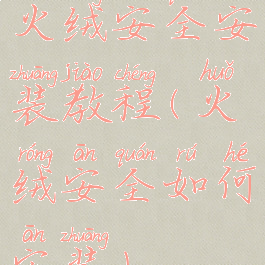 火绒安全安
zhuāng jiào chéng huǒ
装教程(火
róng ān quán rú hé
绒安全如何
ān zhuāng
安装)